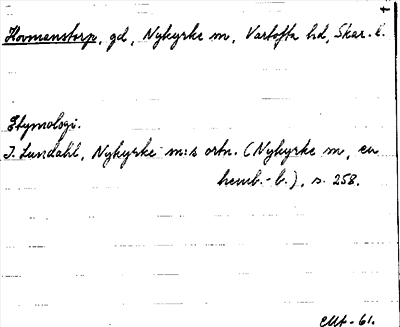 Hovmanstorp, gd, Nykyrke sn, Vartofta hd, Skar. l.
Etymologi.
I. Lundahl, Nykyrke sn:s ortn. (Nykyrke sn, en
hemb.-b.), s. 258.